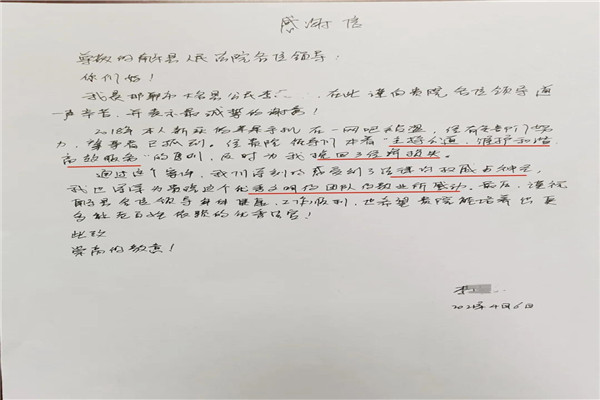 感谢信
尊敬的 县人民法院各位领导：
你们好！
我是邯郸市大名县公民李 在此谨向贵院各位领导道
一声辛苦，并表示最诚挚的谢意！
2018年本人新买的苹果手机在一网吧被盗，经有关部门努
力，肇事者已抓到。经贵院领导们本着“主持公道，维护和谐，
高效服务”的原则，及时为我挽回了经济损失。
通过这个案件，我们深刻的感受到了法律的权威与神圣，
我也深深为贵院这个优秀文明的团队的敬业所感动。最后，谨祝
县各位领导身体健康，工作顺利，也希望贵院能培养出更
多能让百姓依赖的优秀法官！
此致
崇高的敬意！
李
2021年4月6日